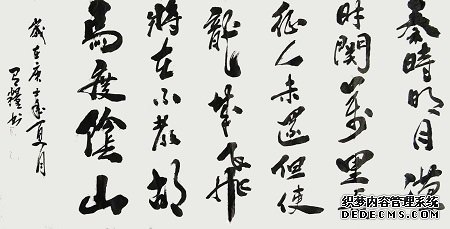 秦時明月漢
時関萬里
征人未還但使
龍城飛
將在不教胡
馬度陰山
歲在庚年夏月
书
织梦内容管理系统
DEDECMS.COM